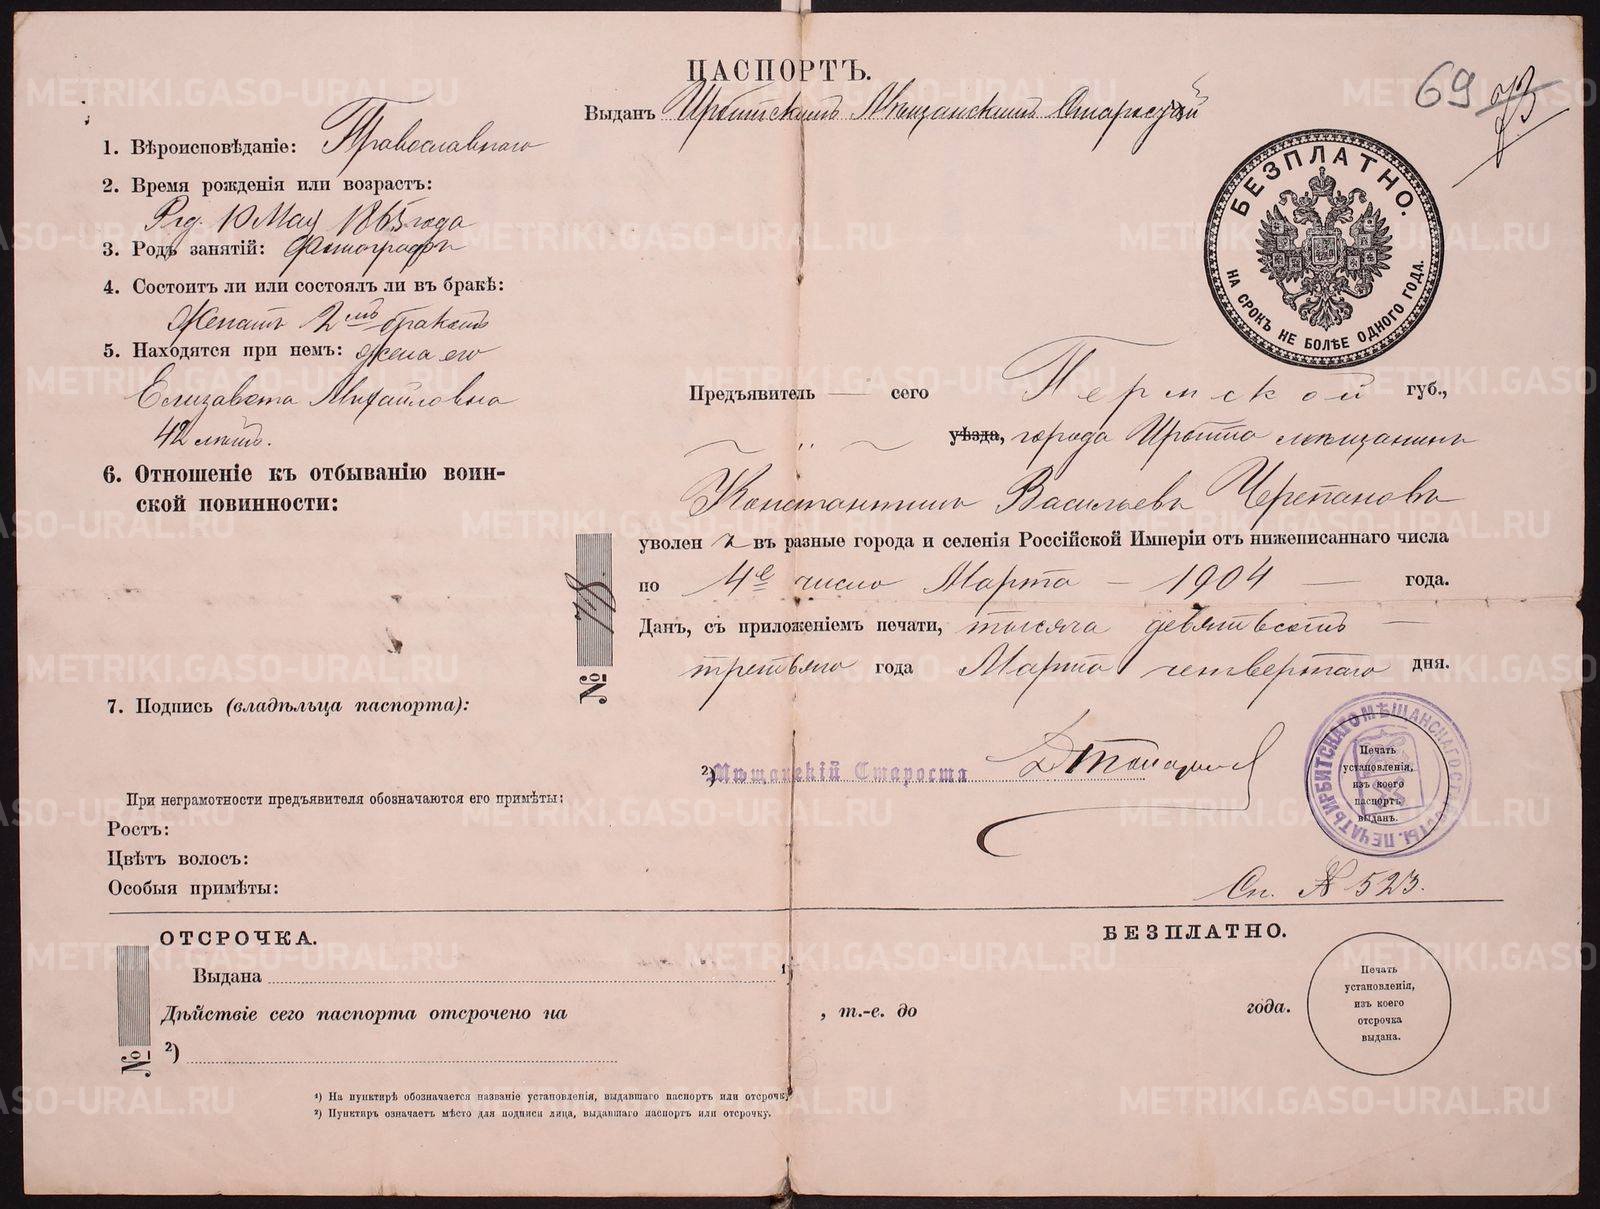 ПАСПОРТЪ.
69
Выданъ Ирбитскимъ Мѣщанскимъ Старостой
БЕЗПЛАТНО.
НА СРОКЪ НЕ БОЛѢЕ ОДНОГО ГОДА.
1. Вѣроисповѣданіе: Православнаго
2. Время рожденія или возрастъ:
10 Мая 1865 года
3. Родъ занятій: Фотографъ
4. Состоитъ ли или состоялъ ли въ бракѣ:
Женатъ 2мъ бракомъ
5. Находятся при немъ: жена его
Елизавета Михайловна
42 лѣтъ.
6. Отношеніе къ отбыванію воин-
ской повинности:
7. Подпись (владѣльца паспорта):
При неграмотности предъявителя обозначаются его примѣты:
Ростъ:
Цвѣтъ волосъ:
Особыя примѣты:
№ 78
Предъявитель — сего Пермской губ.,
уѣзда, города Ирбита мѣщанинъ
Константинъ Васильевъ Черепановъ
уволен ъ въ разные города и селенія Россійской Имперіи отъ нижеписаннаго числа
по 4е число Марта — 1904 — года.
Данъ, съ приложеніемъ печати, тысяча девятьсотъ —
третьяго года Марта четвертаго дня.
²) Мѣщанскій Староста
ПЕЧАТЬ ИРБИТСКАГО МѢЩАНСКАГО СТАРОСТЫ.
Печать
установленія,
изъ коего
паспортъ
выданъ.
Сп. № 523.
ОТСРОЧКА.
БЕЗПЛАТНО.
Выдана ¹)
Дѣйствіе сего паспорта отсрочено на , т.-е. до года.
№ ²)
Печать
установленія,
изъ коего
отсрочка
выдана.
¹) На пунктирѣ обозначается названіе установленія, выдавшаго паспортъ или отсрочку
²) Пунктиръ означаетъ мѣсто для подписи лица, выдавшаго паспортъ или отсрочку.
METRIKI.GASO-URAL.RU